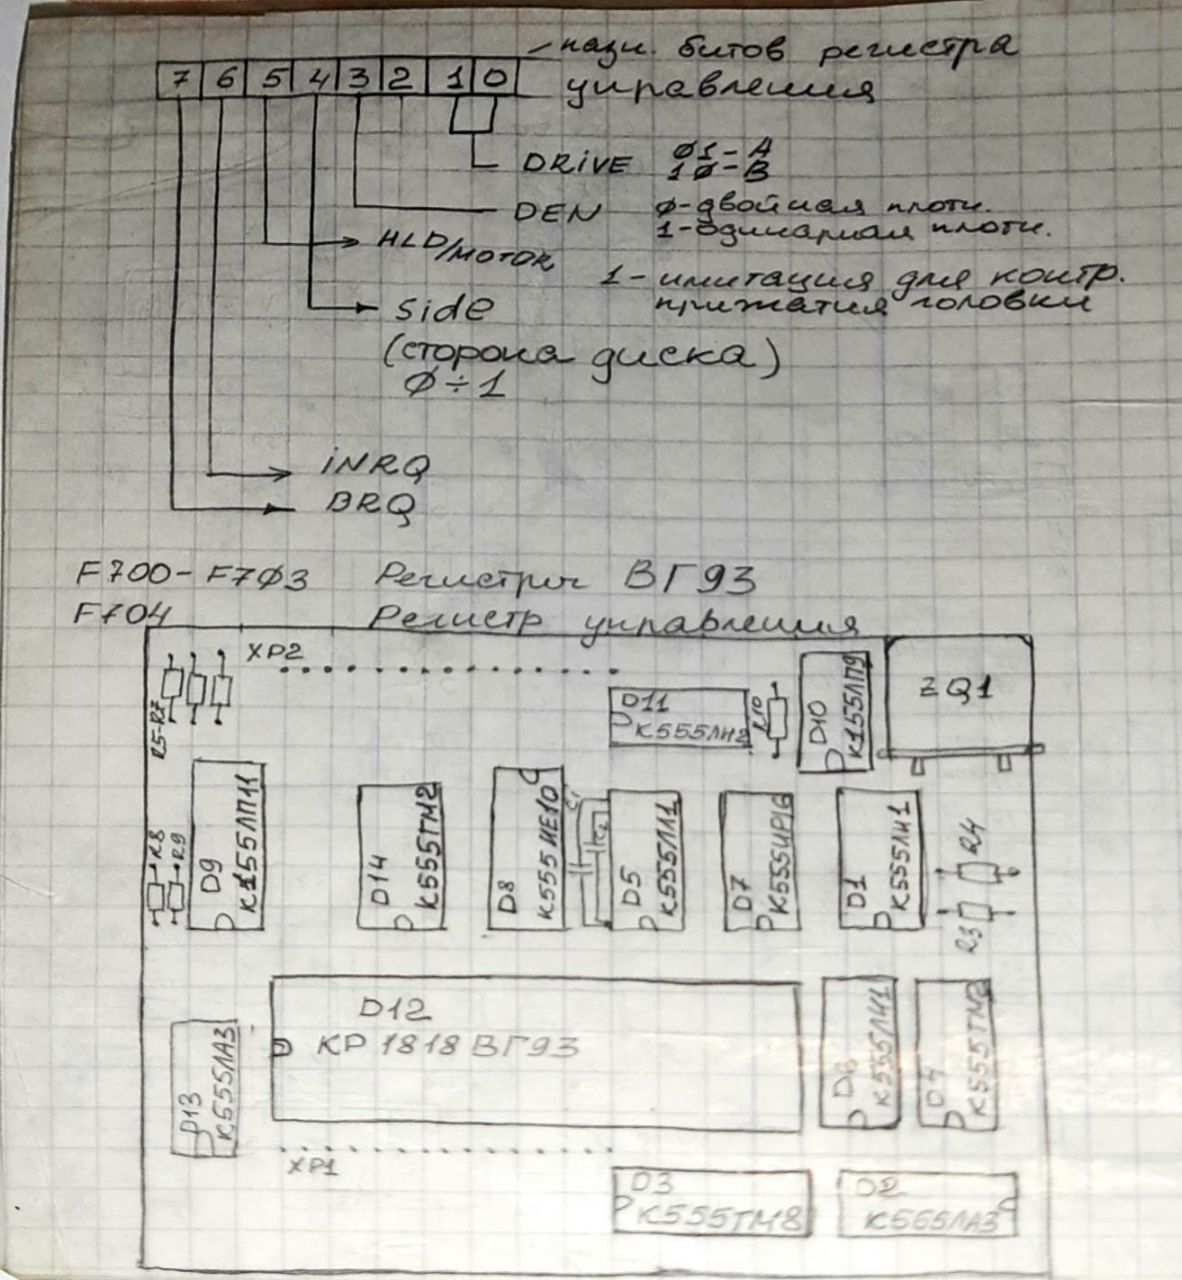 назн. битов регистра
управления
7 6 5 4 3 2 1 0
DRIVE 01-A
10-B
DEN 0-двойная плотн.
1-одинарная плотн.
HLD/MOTOR 1-имитация для контр.
прижатия головки
side
(сторона диска)
0÷1
INRQ
DRQ
F700-F703 Регистры ВГ93
F704 Регистр управления
XP2
R5-R7
D11
К555ЛН2
R10
D10
К155ЛП9
ZQ1
R8
R9
D9
К155ЛП11
D14
К555ТМ2
D8
К555ИЕ10
C1
C2
D5
К555ЛЛ1
D7
К555ИР16
D1
К555ЛИ1
R4
R3
D12
КР1818ВГ93
D13
К555ЛА3
D6
К555ЛИ1
D4
К555ТМ2
XP1
D3
К555ТМ8
D2
К555ЛА3